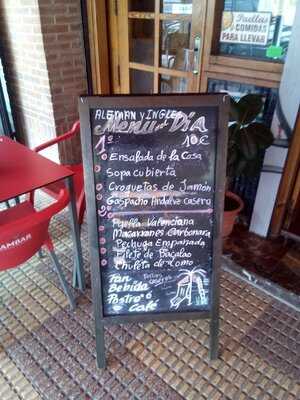 Paellas
y COMIDAS
PARA LLEVAR
ALEMAN y INGLES
Menu del DIA
1º 10€
Ensalada de la Casa
Sopa cubierta
Croquetas de Jamón
Gaspacho Andaluz casero
2º
Paella Valenciana
Macarrones Carbonara
Pechuga Empanada
Filete de Bacalao
Chuleta de Lomo
Pan
Bebida
Postre ó
Café
AMBAR